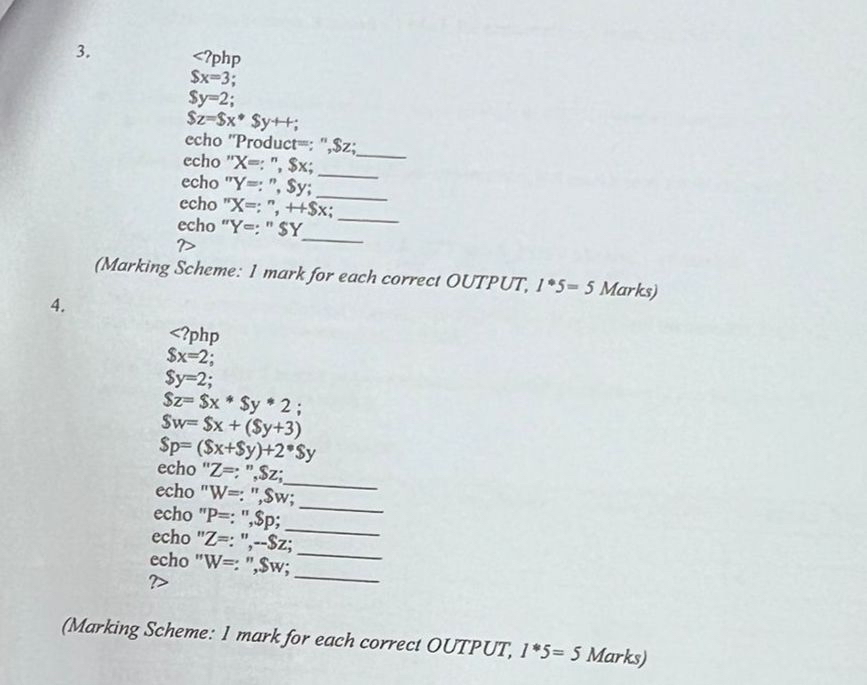 3.
<?php
$x=3;
$y=2;
$z=$x* $y++;
echo "Product=: ",$z;______
echo "X=: ", $x; _______
echo "Y=: ", $y; ________
echo "X=: ", ++$x; _______
echo "Y=: " $Y_______
?>
(Marking Scheme: 1 mark for each correct OUTPUT, 1*5= 5 Marks)
4.
<?php
$x=2;
$y=2;
$z= $x * $y * 2 ;
$w= $x + ($y+3)
$p= ($x+$y)+2*$y
echo "Z=: ",$z;___________
echo "W=: ",$w; __________
echo "P=: ",$p; ___________
echo "Z=: ",--$z; __________
echo "W=: ",$w; __________
?>
(Marking Scheme: 1 mark for each correct OUTPUT, 1*5= 5 Marks)